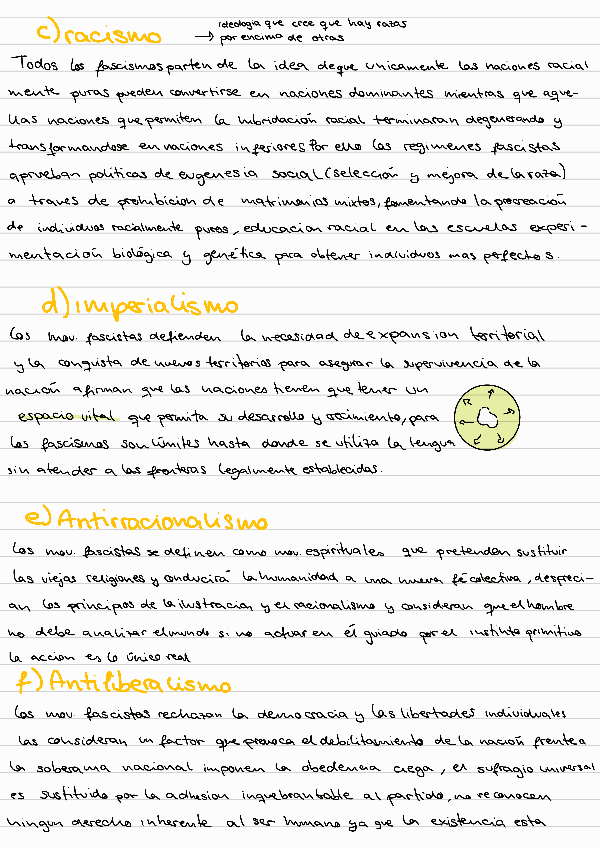 c) racismo
ideología que cree que hay razas
→ por encima de otras
Todos los fascismos parten de la idea de que unicamente las naciones racial
mente puras pueden convertirse en naciones dominantes mientras que aque-
llas naciones que permiten la hibridación racial terminaran degenerando y
transformandose en naciones inferiores Por ello los regimenes fascistas
aprueban politicas de eugenesia social (selección y mejora de la raza)
a traves de prohibicion de matrimonios mixtos, fomentando la procreación
de individuos racialmente puros, educacion racial en las escuelas experi-
mentación biológica y genética para obtener individuos mas perfectos.
d) imperialismo
Los mov. fascistas defienden la necesidad de expansion territorial
y la conquista de nuevos territorios para asegurar la supervivencia de la
nación afirman que las naciones tienen que tener un
espacio vital que permita su desarrollo y crecimiento, para
los fascismos son límites hasta donde se utiliza la lengua
sin atender a las fronteras legalmente establecidas.
e) Antirracionalismo
Los mov. fascistas se definen como mov. espirituales que pretenden sustituir
las viejas religiones y conducirá la humanidad a una nueva fé colectiva, despreci-
an los principios de la ilustracion y el racionalismo y consideran que el hombre
no debe analizar el mundo si no actuar en él guiado por el instinto primitivo
la accion es lo único real
f) Antiliberalismo
Los mov. fascistas rechazan la democracia y las libertades individuales
las consideran un factor que provoca el debilitamiento de la nación frente a
la soberania nacional imponen la obedencia ciega, el sufragio universal
es sustituido por la adhesion inquebrantable al partido, no reconocen
ningun derecho inherente al ser humano ya que la existencia esta